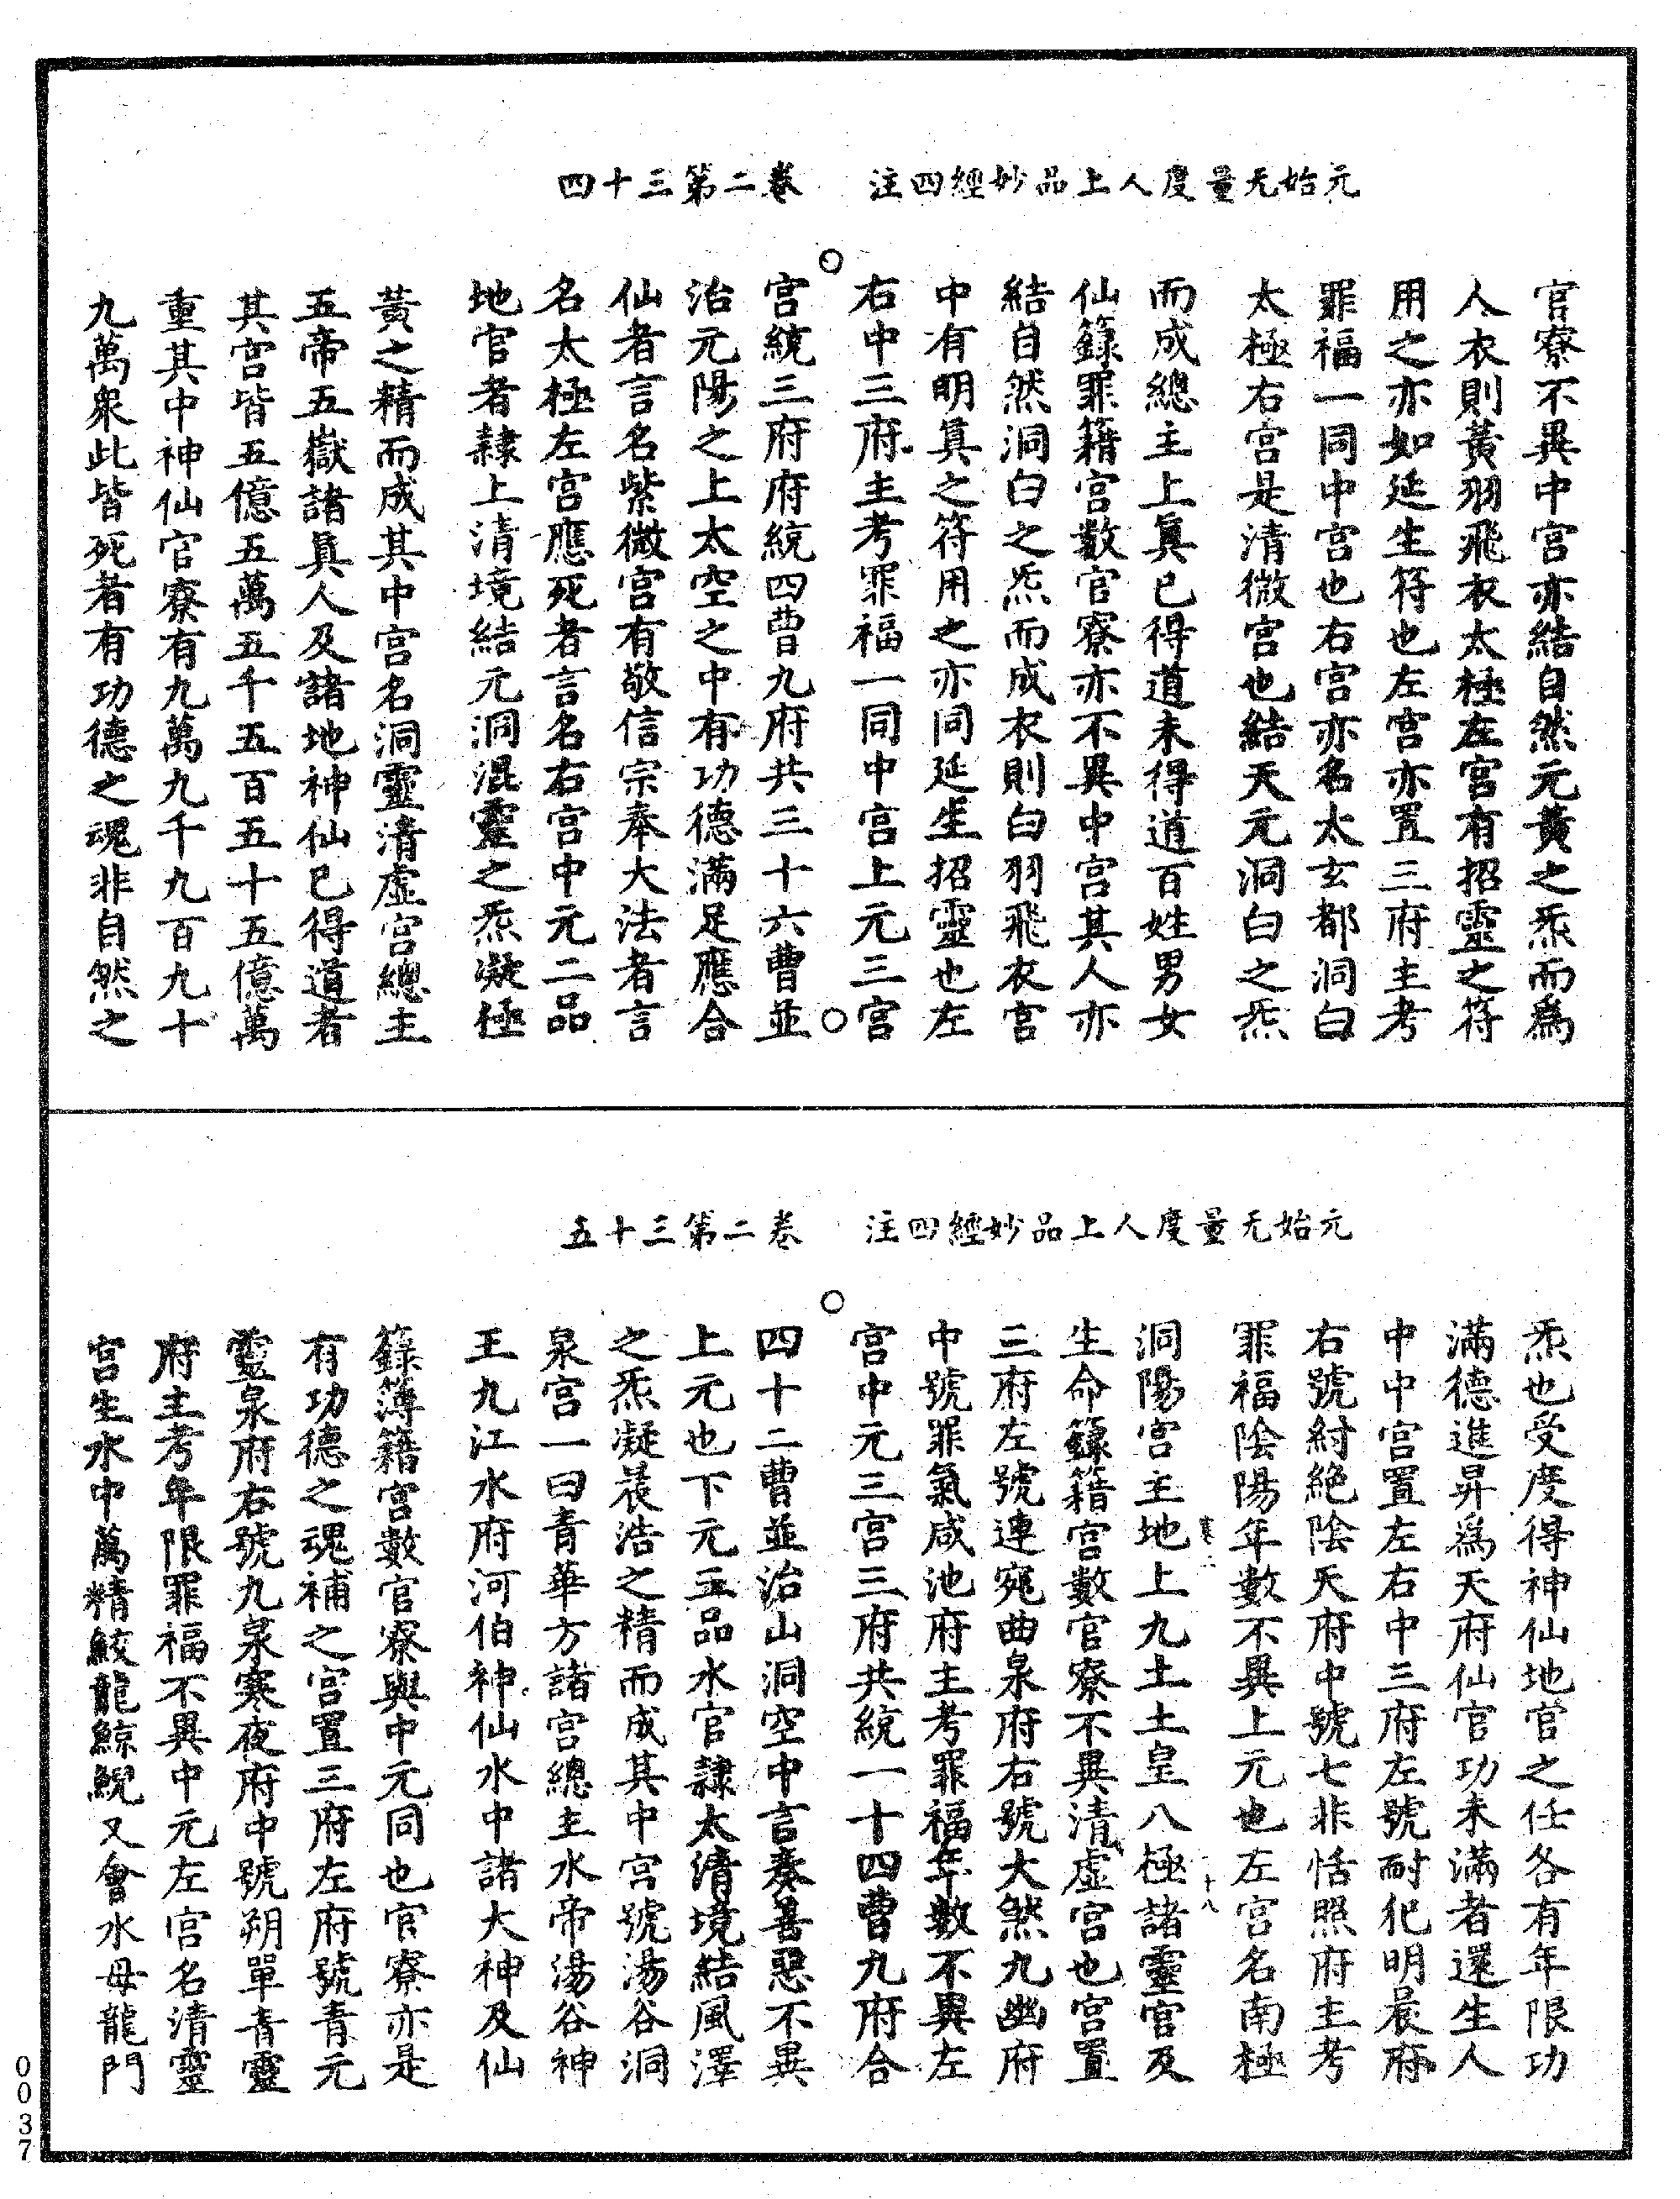 元始无量度人上品妙經四注　卷二第三十四
官寮不異中宮亦結自然元黃之炁而爲
人衣則黃羽飛衣太極左宮有招靈之符
用之亦如延生符也左宮亦置三府主考
罪福一同中宮也右宮亦名太玄都洞白
太極右宮是清微宮也結天元洞白之炁
而成總主上眞已得道未得道百姓男女
仙籙罪籍宮數官寮亦不異中宮其人亦
結自然洞白之炁而成衣則白羽飛衣宮
中有明眞之符用之亦同延生招靈也左
右中三府主考罪福一同中宮上元三宮
宮統三府府統四曹九府共三十六曹並
治元陽之上太空之中有功德滿足應合
仙者言名紫微宮有敬信宗奉大法者言
名太極左宮應死者言名右宮中元二品
地官者隸上清境結元洞混靈之炁凝極
黃之精而成其中宮名洞靈清虛宮總主
五帝五嶽諸眞人及諸地神仙已得道者
其宮皆五億五萬五千五百五十五億萬
重其中神仙官寮有九萬九千九百九十
九萬眾此皆死者有功德之魂非自然之
元始无量度人上品妙經四注　卷二第三十五
炁也受度得神仙地官之任各有年限功
滿德進昇爲天府仙官功未滿者還生人
中中宮置左右中三府左號耐犯明晨府
右號紂絕陰天府中號七非恬照府主考
罪福陰陽年數不異上元也左宮名南極
洞陽宮主地上九土土皇八極諸靈官及
生命籙籍宮數官寮不異清虛宮也宮置
三府左號連宛曲泉府右號大煞九幽府
中號罪氣咸池府主考罪福年數不異左
宮中元三宮三府共統一十四曹九府合
四十二曹並治山洞空中言奏善惡不異
上元也下元三品水官隸太清境結風澤
之炁凝晨浩之精而成其中宮號湯谷洞
泉宮一曰青華方諸宮總主水帝湯谷神
王九江水府河伯神仙水中諸大神及仙
籙簿籍宮數官寮與中元同也官寮亦是
有功德之魂補之宮置三府左府號青元
靈泉府右號九泉寒夜府中號朔單青靈
府主考年限罪福不異中元左宮名清靈
宮生水中萬精鮫龍鯨鯢又會水母龍門
0037